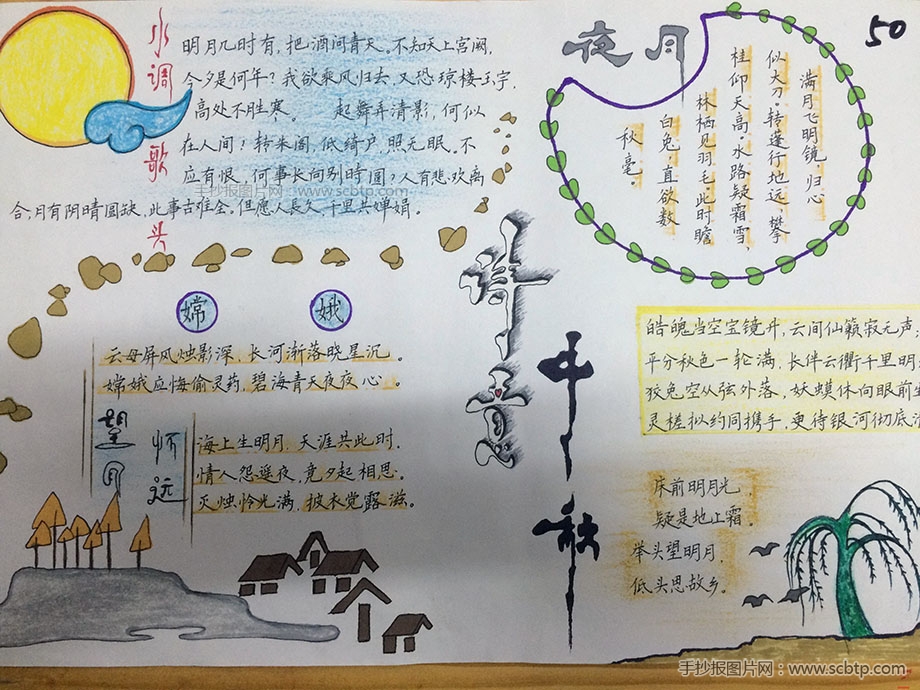 50
水调歌头
明月几时有,把酒问青天。不知天上宫阙,
今夕是何年?我欲乘风归去,又恐琼楼玉宇,
高处不胜寒。 起舞弄清影,何似
在人间!转朱阁,低绮户,照无眠。不
应有恨,何事长向别时圆?人有悲欢离
合,月有阴晴圆缺,此事古难全。但愿人長久,千里共婵娟。
手抄报图片网:www.scbtp.com
月夜
满月飞明镜,归心
似大刀。转蓬行地远,攀
桂仰天高。水路疑霜雪,
林栖见羽毛。此时瞻
白兔,直欲数
秋毫。
诗意
中秋
嫦娥
云母屏风烛影深,长河渐落晓星沉。
嫦娥应悔偷灵药,碧海青天夜夜心。
望月
怀远
海上生明月,天涯共此时,
情人怨遥夜,竟夕起相思。
灭烛怜光满,披衣觉露滋。
皓魄当空宝镜升,云间仙籁寂无声,
平分秋色一轮满,长伴云衢千里明
狡兔空从弦外落,妖蟆休向眼前
灵槎拟约同携手,更待银河彻底
床前明月光,
疑是地上霜。
举头望明月,
低头思故乡。
手抄报图片网:www.scbtp.com